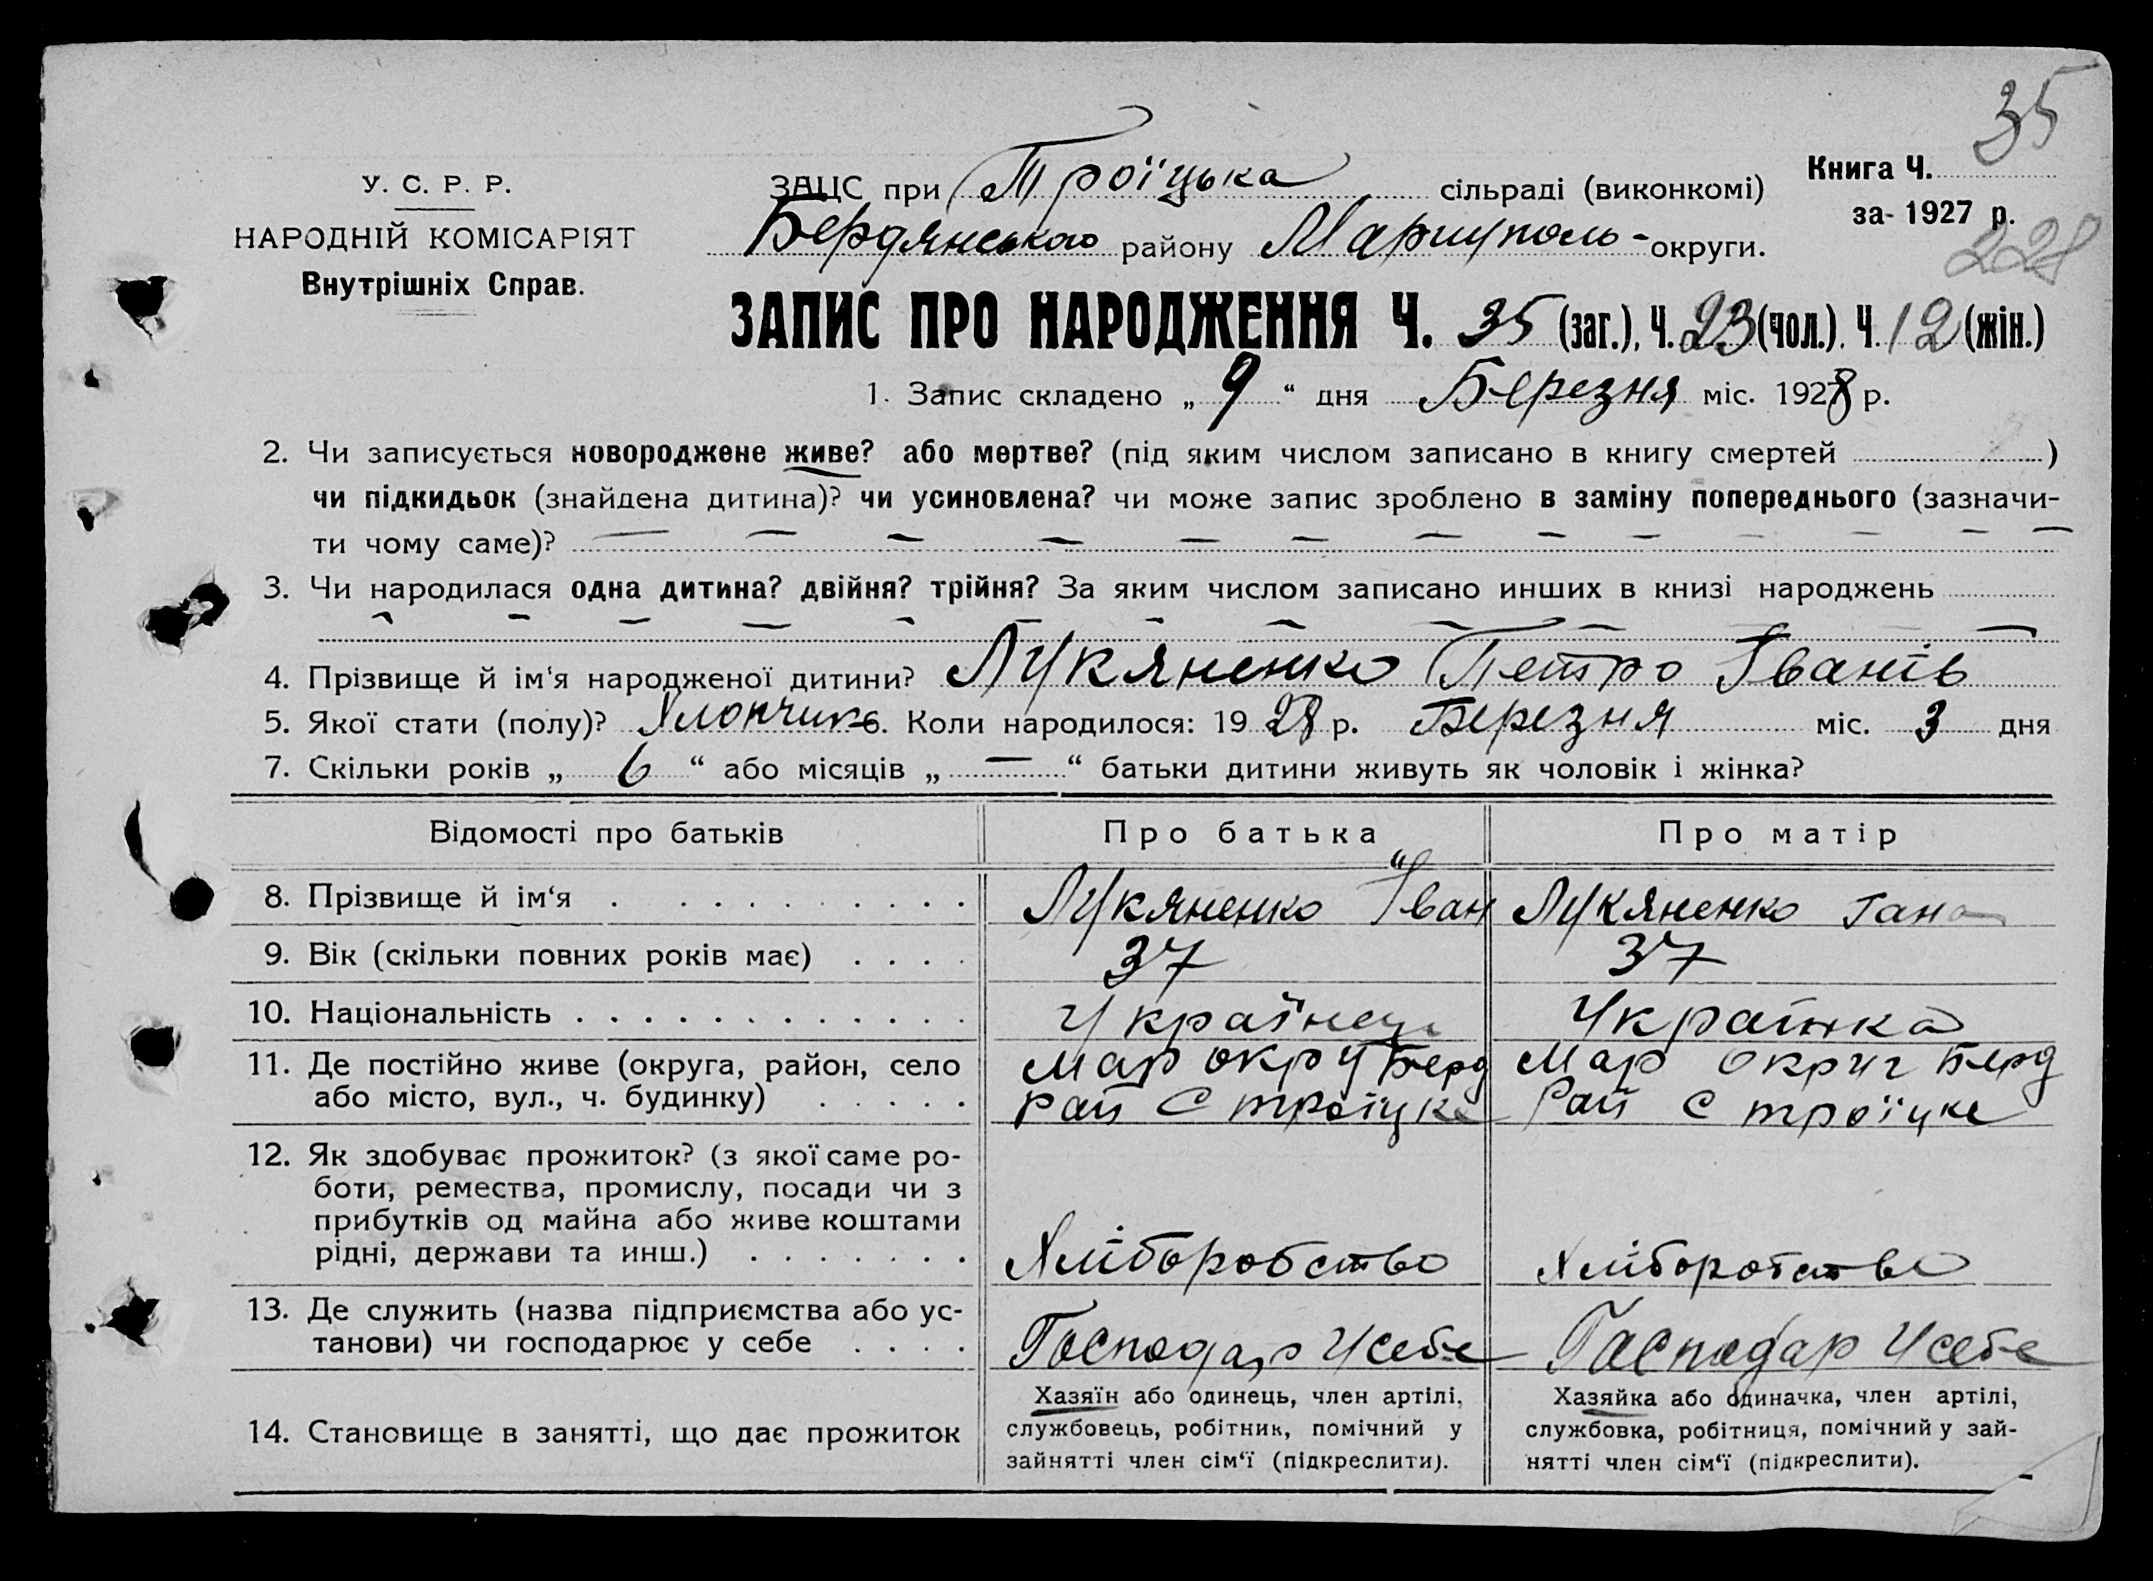 35
У. С. Р. Р.
НАРОДНІЙ КОМІСАРІЯТ
Внутрішніх Справ.
ЗАЦС при Троїцька сільраді (виконкомі)
Бердянського району Маріуполь- округи.
Книга Ч.
за- 1927 р.
228
ЗАПИС ПРО НАРОДЖЕННЯ Ч. 35 (заг.), Ч. 23 (чол.), Ч. 12 (жін.)
1. Запис складено „ 9 “ дня Березня міс. 1928 р.
2. Чи записується новороджене живе? або мертве? (під яким числом записано в книгу смертей )
чи підкидьок (знайдена дитина)? чи усиновлена? чи може запис зроблено в заміну попереднього (зазначи-
ти чому саме)? — — — — — — — — — — — —
3. Чи народилася одна дитина? двійня? трійня? За яким числом записано инших в книзі народжень
— — — — — — — — — — —
4. Прізвище й ім‘я народженої дитини? Лукяненко Петро Іванів
5. Якої стати (полу)? Хлопчик 6. Коли народилося: 19 28 р. Березня міс. 3 дня
7. Скільки років „ 6 “ або місяців „ — “ батьки дитини живуть як чоловік і жінка?
Відомості про батьків Про батька Про матір
8. Прізвище й ім‘я . . . . . . . . . . Лукяненко Іван Лукяненко Гана
9. Вік (скільки повних років має) . . . . 37 37
10. Національність . . . . . . . . . . . . Українець Українка
11. Де постійно живе (округа, район, село Мар окру Берд Мар округ Берд
або місто, вул., ч. будинку) . . . . . Рай С Троїцке Рай С троїцке
12. Як здобуває прожиток? (з якої саме ро-
боти, ремества, промислу, посади чи з
прибутків од майна або живе коштами
рідні, держави та инш.) . . . . . . . Хліборобство Хліборобство
13. Де служить (назва підприємства або ус-
танови) чи господарює у себе . . . . Господар Усебе Господар Усебе
14. Становище в занятті, що дає прожиток
Хазяїн або одинець, член артілі,
службовець, робітник, помічний у
зайнятті член сім‘ї (підкреслити).
Хазяйка або одиначка, член артілі,
службовка, робітниця, помічний у зай-
нятті член сім‘ї (підкреслити).